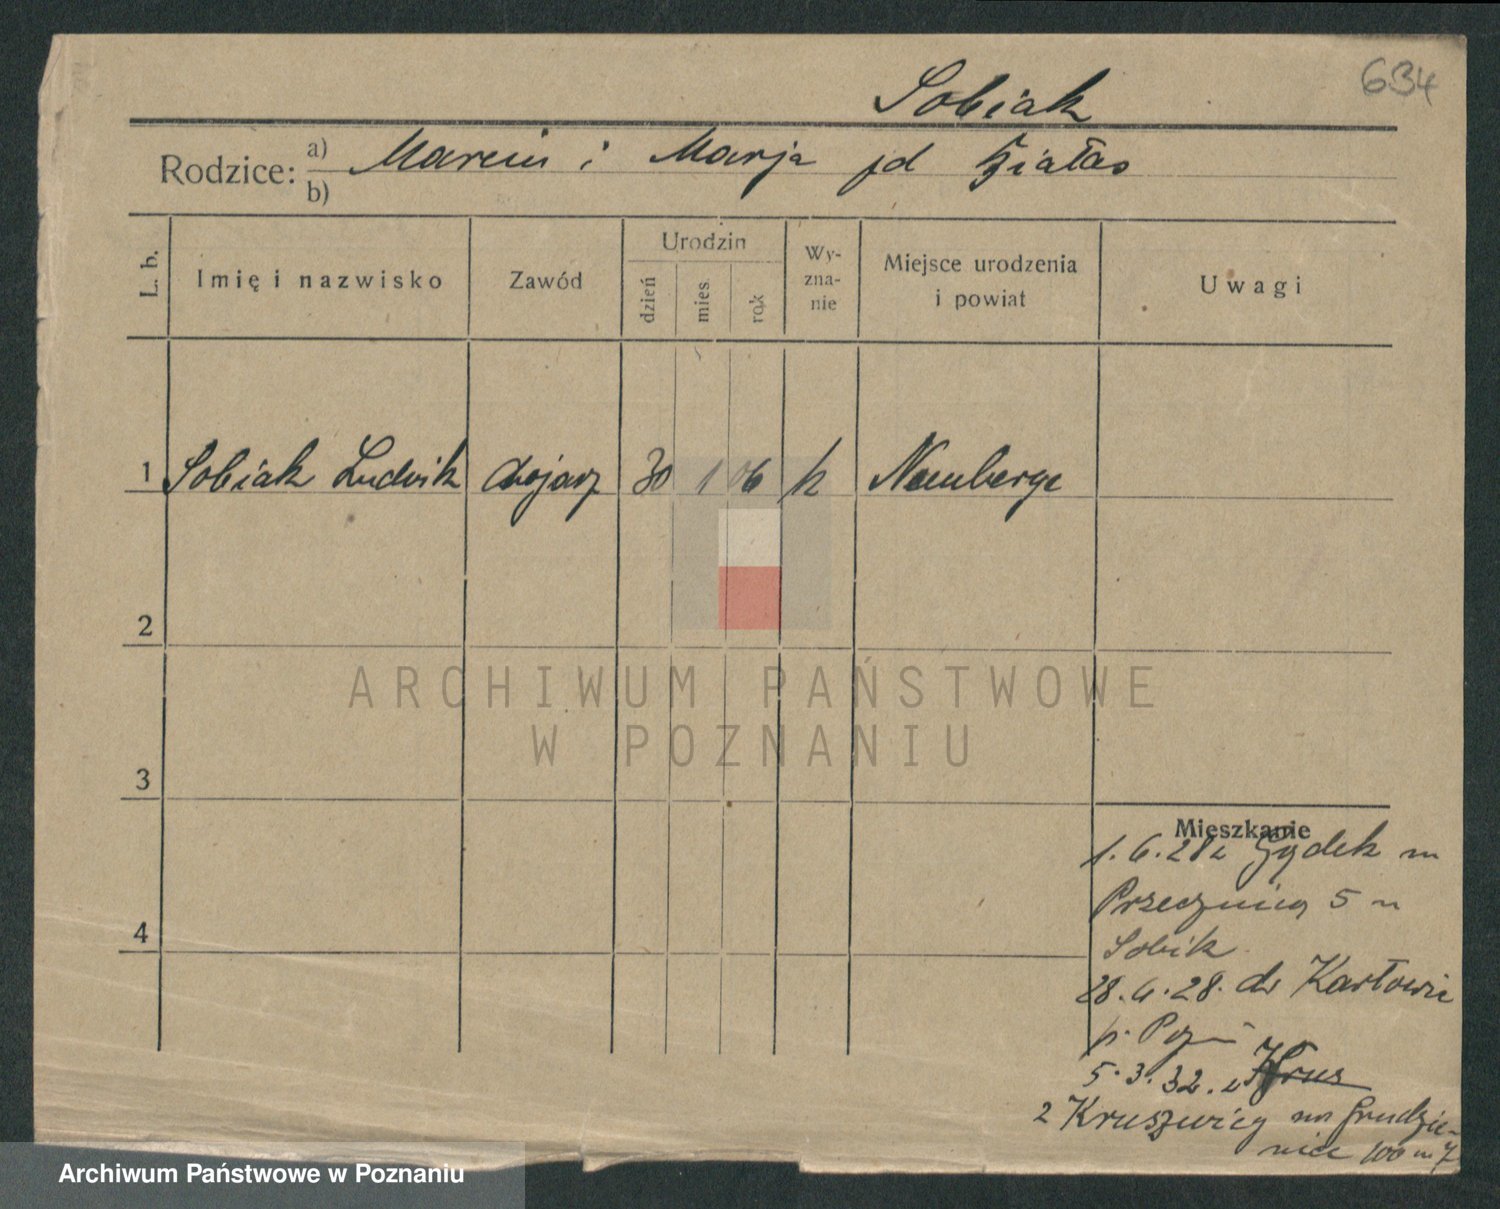 634
Sobiak
Rodzice: a) Marcin i Marja jd Białas
b)
L. b. Imię i nazwisko Zawód Urodzin dzień mies. rok Wy-zna-nie Miejsce urodzenia i powiat Uwagi
1 Sobiak Ludwik dojarz 30 1 06 k
2
3
4
Mieszkanie
1.6.28 z Gądek
Przecznica 5
Sobik
28. 28. do Karłowic
p. Pozn
5.3.32. z Krus
z Kruszwicy na Grudzie-
niec 100 m 7
ARCHIWUM PAŃSTWOWE
W POZNANIU
Archiwum Państwowe w Poznaniu